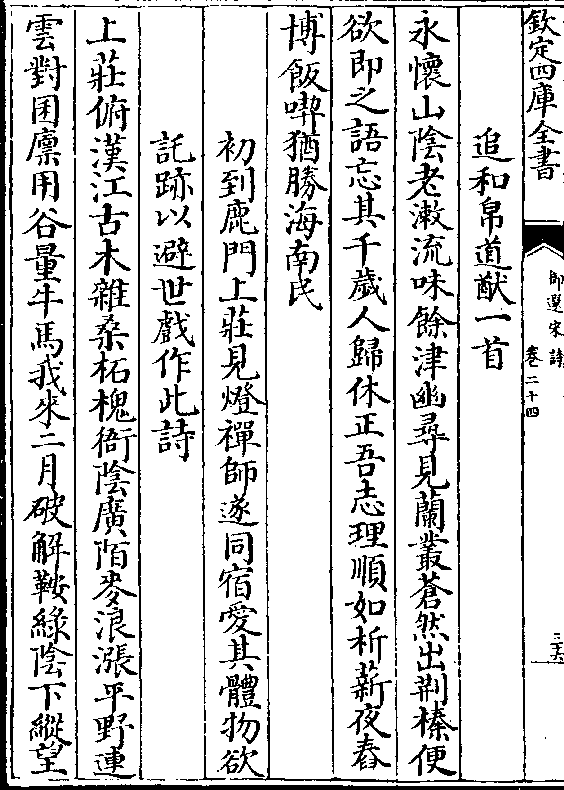 欽定四庫全書
御選宋詩
卷二十四
三六
追和帛道猷一首
永懷山陰老漱流味餘津幽尋見蘭叢蒼然出荆榛便
欲即之語忘其千歲人歸休正吾志理順如析薪夜舂
博飯喫猶勝海南民
初到鹿門上莊見燈禪師遂同宿愛其體物欲
託跡以避世戲作此詩
上莊俯漢江古木雜桑柘槐衙陰廣陌麥浪漲平野連
雲對囷廪用谷量牛馬我來二月破解鞍綠陰下縱望